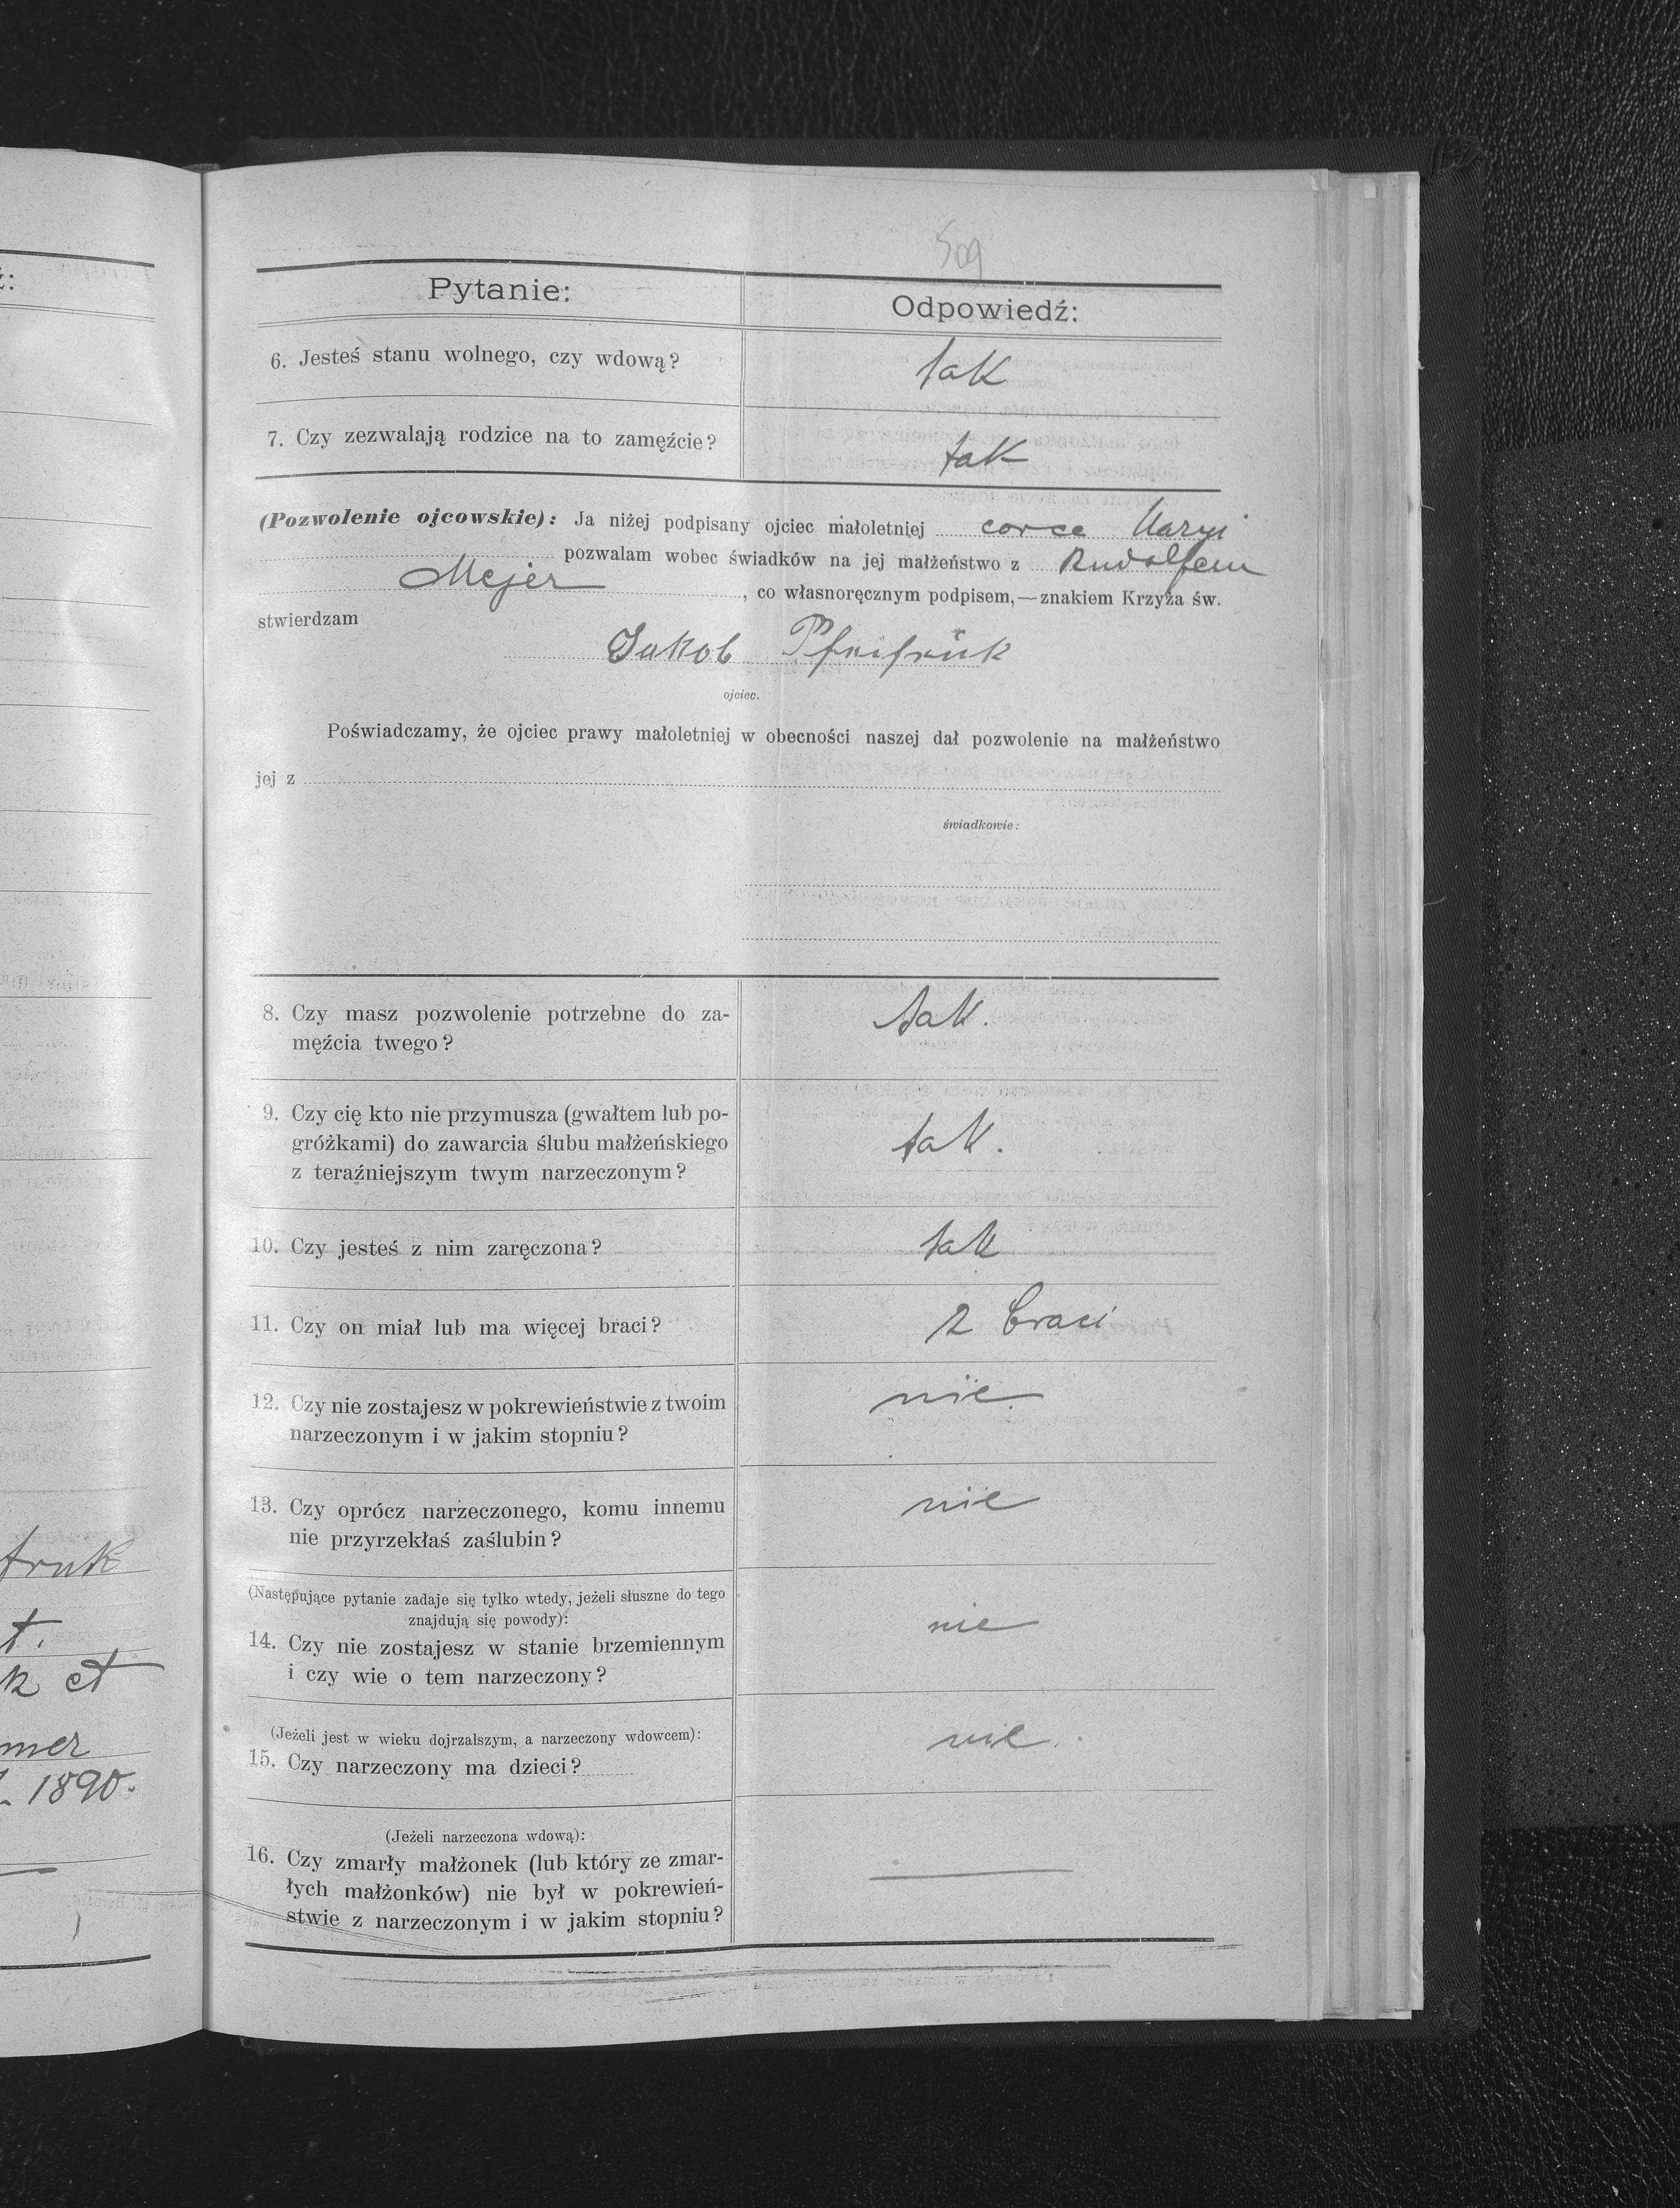 509
Pytanie:
Odpowiedź:
6. Jesteś stanu wolnego, czy wdową?
tak
7. Czy zezwalają rodzice na to zamęźcie?
tak
(Pozwolenie ojcowskie): Ja niżej podpisany ojciec małoletniej corce Maryi
pozwalam wobec świadków na jej małżeństwo z Rudolfem
Mejer, co własnoręcznym podpisem,—znakiem Krzyża św.
stwierdzam
Jakob
ojciec.
Poświadczamy, że ojciec prawy małoletniej w obecności naszej dał pozwolenie na małżeństwo
jej z
świadkowie:
8. Czy masz pozwolenie potrzebne do za-
męźcia twego?
tak.
9. Czy cię kto nie przymusza (gwałtem lub po-
gróżkami) do zawarcia ślubu małżeńskiego
z teraźniejszym twym narzeczonym?
tak.
10. Czy jesteś z nim zaręczona?
tak
11. Czy on miał lub ma więcej braci?
2 braci
12. Czy nie zostajesz w pokrewieństwie z twoim
narzeczonym i w jakim stopniu?
nie
13. Czy oprócz narzeczonego, komu innemu
nie przyrzekłaś zaślubin?
nie
(Następujące pytanie zadaje się tylko wtedy, jeżeli słuszne do tego
znajdują się powody):
14. Czy nie zostajesz w stanie brzemiennym
i czy wie o tem narzeczony?
nie
(Jeżeli jest w wieku dojrzalszym, a narzeczony wdowcem):
15. Czy narzeczony ma dzieci?
nie.
(Jeżeli narzeczona wdową):
16. Czy zmarły małżonek (lub który ze zmar-
łych małżonków) nie był w pokrewień-
stwie z narzeczonym i w jakim stopniu?
et
1890.